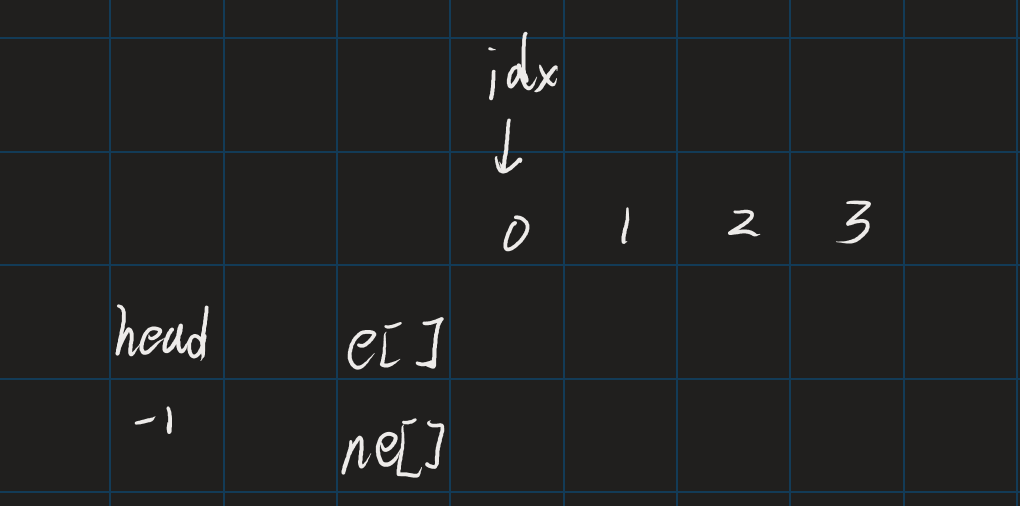 idx
↓
0 1 2 3
head e[]
-1 ne[]